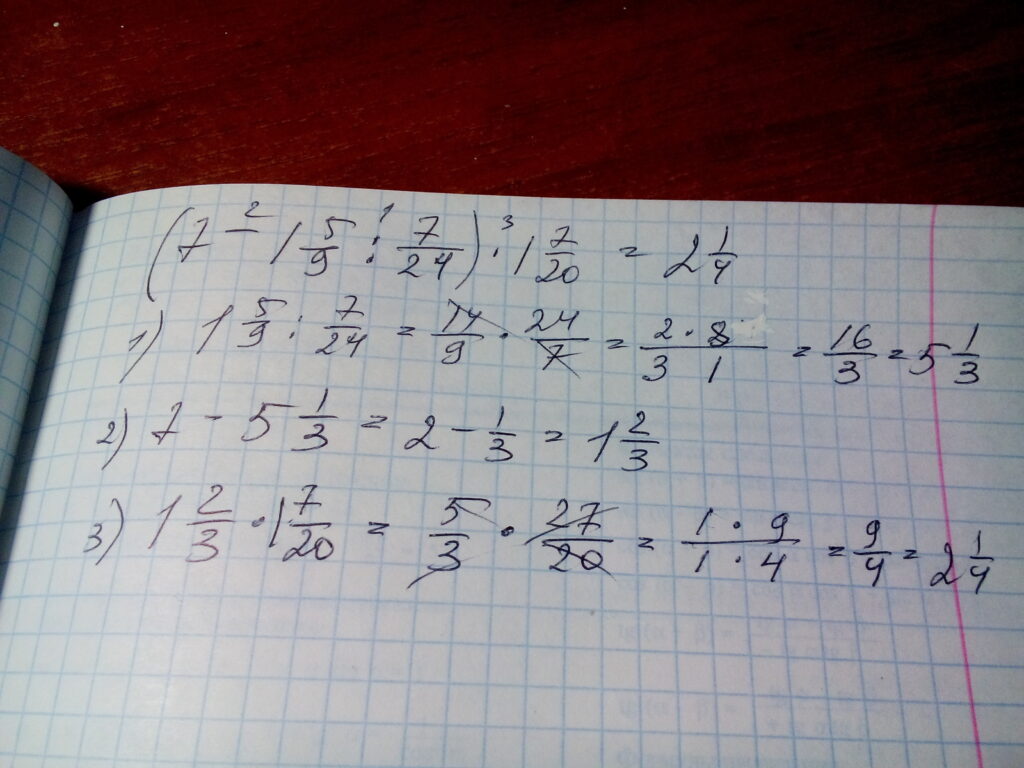 (7 - 1 5/9 : 7/24) · 1 7/20 = 2 1/4
1) 1 5/9 : 7/24 = 14/9 · 24/7 = 2 · 8/3 1 = 16/3 = 5 1/3
2) 7 - 5 1/3 = 2 - 1/3 = 1 2/3
3) 1 2/3 · 1 7/20 = 5/3 · 27/20 = 1 · 9/1 · 4 = 9/4 = 2 1/4